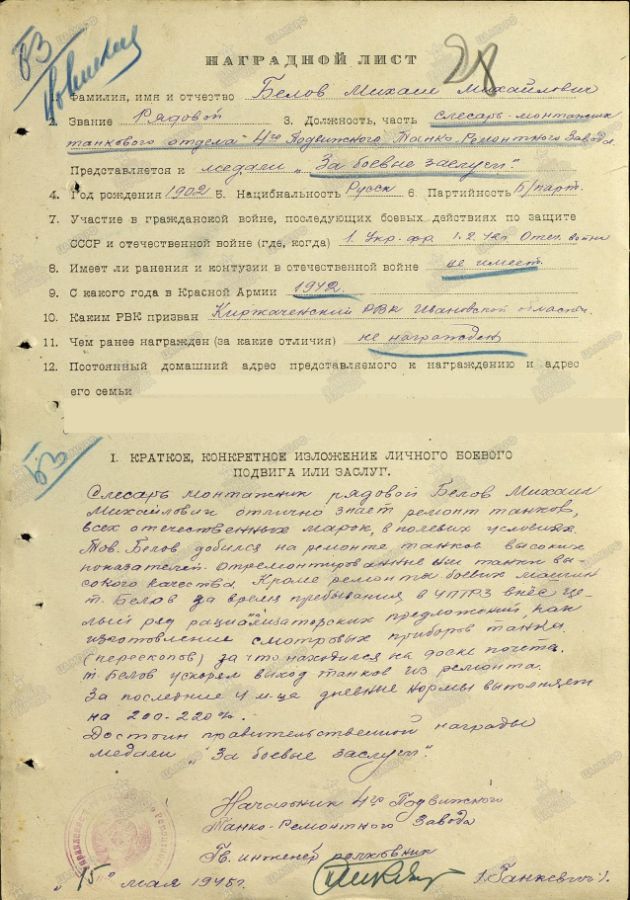 БЗ
28
НАГРАДНОЙ ЛИСТ
1. Фамилия, имя и отчество Белов Михаил Михайлович
2. Звание Рядовой 3. Должность, часть Слесарь-монтажник
танкового отдела 4го Подвижного Танко-Ремонтного Завода
Представляется к медали „За боевые заслуги".
4. Год рождения 1902 5. Национальность Русск 6. Партийность б/парт.
7. Участие в гражданской войне, последующих боевых действиях по защите
СССР и отечественной войне (где, когда) 1. Укр. фр. Отеч. война
8. Имеет ли ранения и контузии в отечественной войне не имеет
9. С какого года в Красной Армии 1942
10. Каким РВК призван Киржаченский РВК Ивановской области.
11. Чем ранее награжден (за какие отличия) не награжден
12. Постоянный домашний адрес представляемого к награждению и адрес
его семьи
БЗ
I. КРАТКОЕ, КОНКРЕТНОЕ ИЗЛОЖЕНИЕ ЛИЧНОГО БОЕВОГО
ПОДВИГА ИЛИ ЗАСЛУГ.
Слесарь монтажник рядовой Белов Михаил
Михайлович отлично знает ремонт танков,
всех отечественных марок, в полевых условиях.
Тов. Белов добился на ремонте танков высоких
показателей. Отремонтированные им танки вы-
сокого качества. Кроме ремонта боевых машин
т. Белов за время пребывания в ЧПТРЗ внёс це-
лый ряд рационализаторских предложений, как
изготовление смотровых приборов танка
(перескопов) за что находился на доске почета.
т. Белов ускорем выход танков из ремонта.
За последние 4 м-ца дневные нормы выполняет
на 200-220%.
Достоин правительственной награды
медали „За боевые заслуги".
Начальник 4го Подвижного
Танко-Ремонтного Завода
Гв. инженер полковник
/Ганкевич/.
„15" мая 1945г.